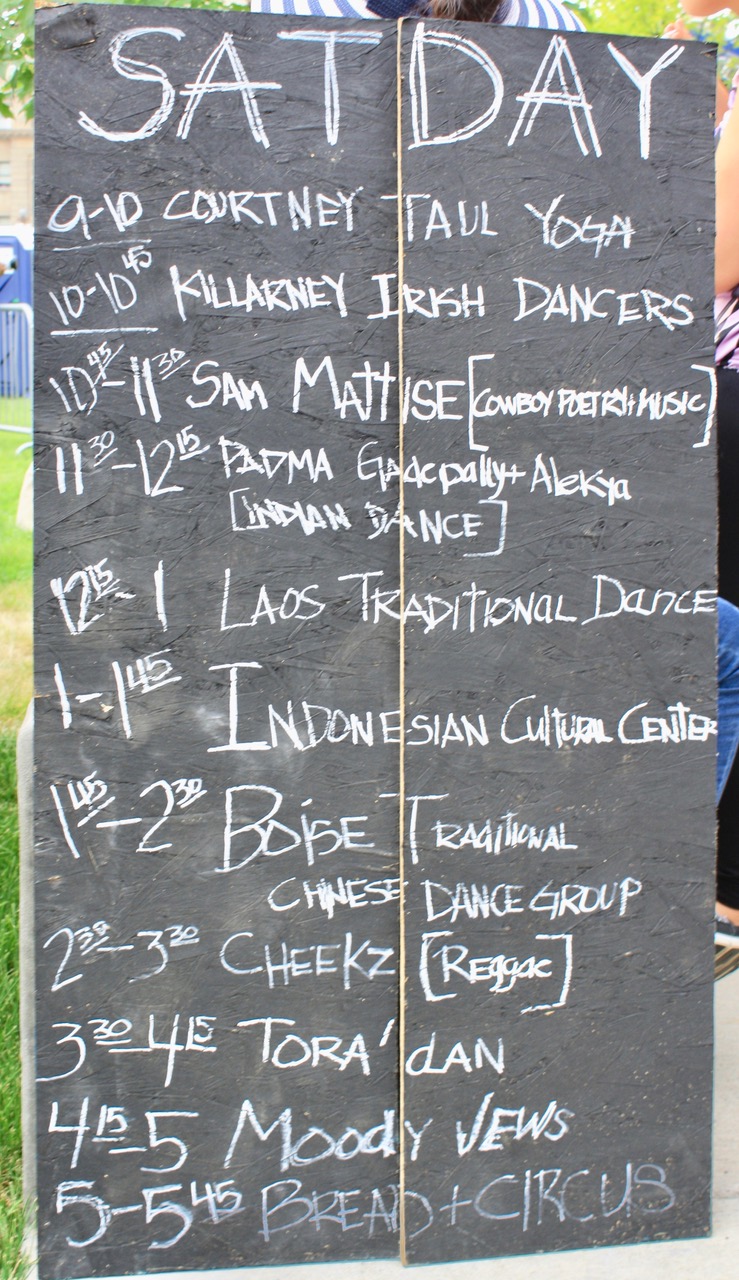 SAT DAY
9-10 COURTNEY TAUL YOGA
10-10 45 KILLARNEY IRISH DANCERS
10 45-11 30 SAM MATTISE [COWBOY POETRY+MUSIC]
11 30-12 15 PADMA Gadepally+ Alekya
[INDIAN DANCE]
12 15-1 LAOS TRADITIONAL Dance
1-1 45 INDONESIAN CULTURAL CENTER
1 45-2 30 BOISE TRADITIONAL
CHINESE DANCE GROUP
2 30-3 30 CHEEKZ [Reggae]
3 30-4 15 TORA'dAN
4 15-5 Moody JEWS
5-5 45 BREAD+CIRCUS